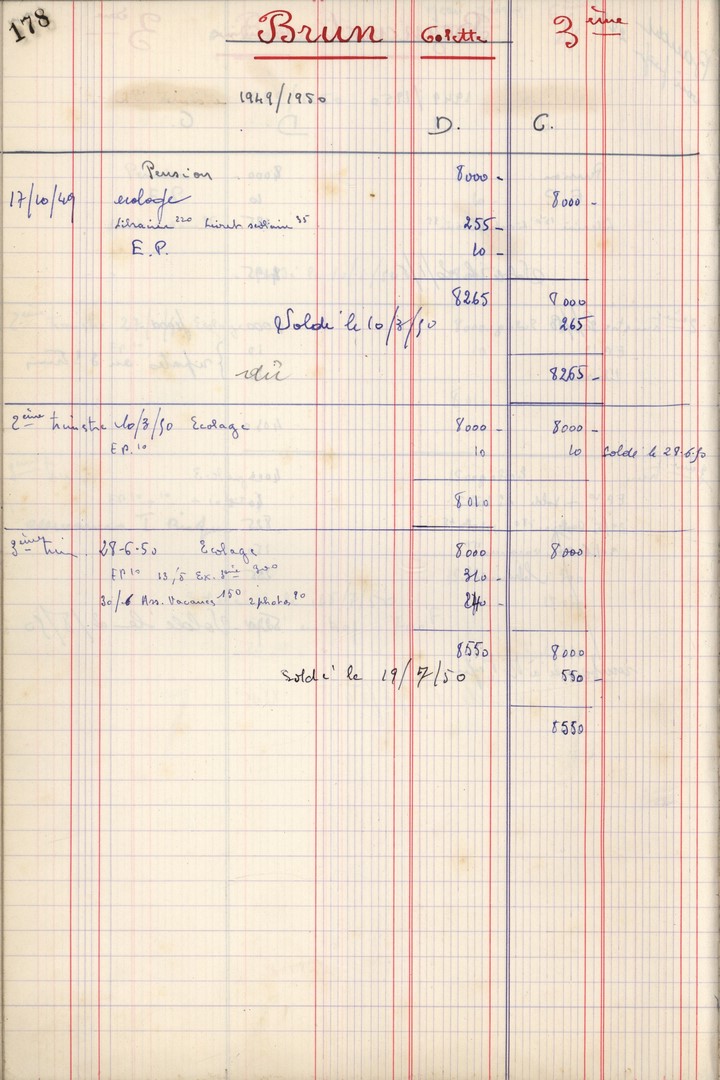 178
Brun Colette 3ème
1949/1950
D. C.
Pension 8000 -
17/10/49 écolage 8000 -
Librairie 220 Livret scolaire 35 255 -
E.P. 10 -
8265 8000
Soldé le 10/3/50 265
dû 8265 -
2ème trimestre 10/3/50 Ecolage 8000 - 8000 -
EP. 10 10 10 soldé le 28-6-50
8010
3ème trim. 28-6-50 Ecolage 8000 8000 -
EP 10 13/5 Ex. 300 310 -
30/6 Ass. Vacances 150 2 photos 90 240 -
8550 8000
soldé le 19/7/50 550 -
8550